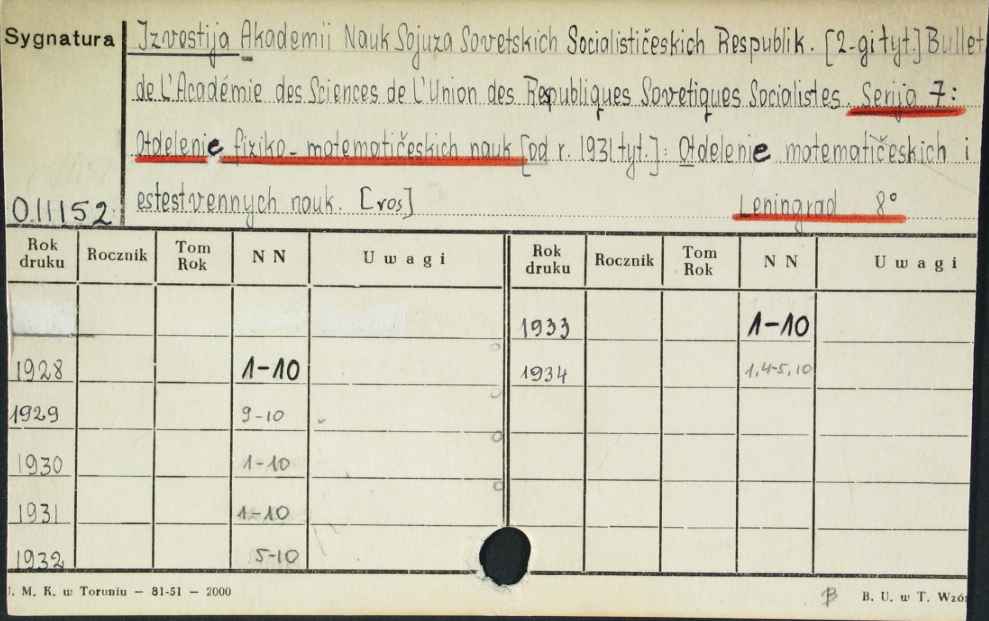 Sygnatura Izvestija Akademii Nauk Sojuza Sovetskich Socialističeskich Respublik. [2-gi tyt.] Bullet
de L'Académie des Sciences de L'Union des Républiques Sovetiques Socialistes. Serija 7:
Otdelenie fiziko-matematičeskich nauk [od r. 1931 tyt.]: Otdelenie matematičeskich i
estestvennych nauk. [ros] Leningrad 8°
O.11152
Rok druku Rocznik Tom Rok NN Uwagi Rok druku Rocznik Tom Rok NN Uwagi
1933 1-10
1928 1-10 1934 1,4-5,10
1929 9-10
1930 1-10
1931 1-10
1932 5-10
. M. K. w Toruniu — 81-51 — 2000 B B. U. w T. Wzó